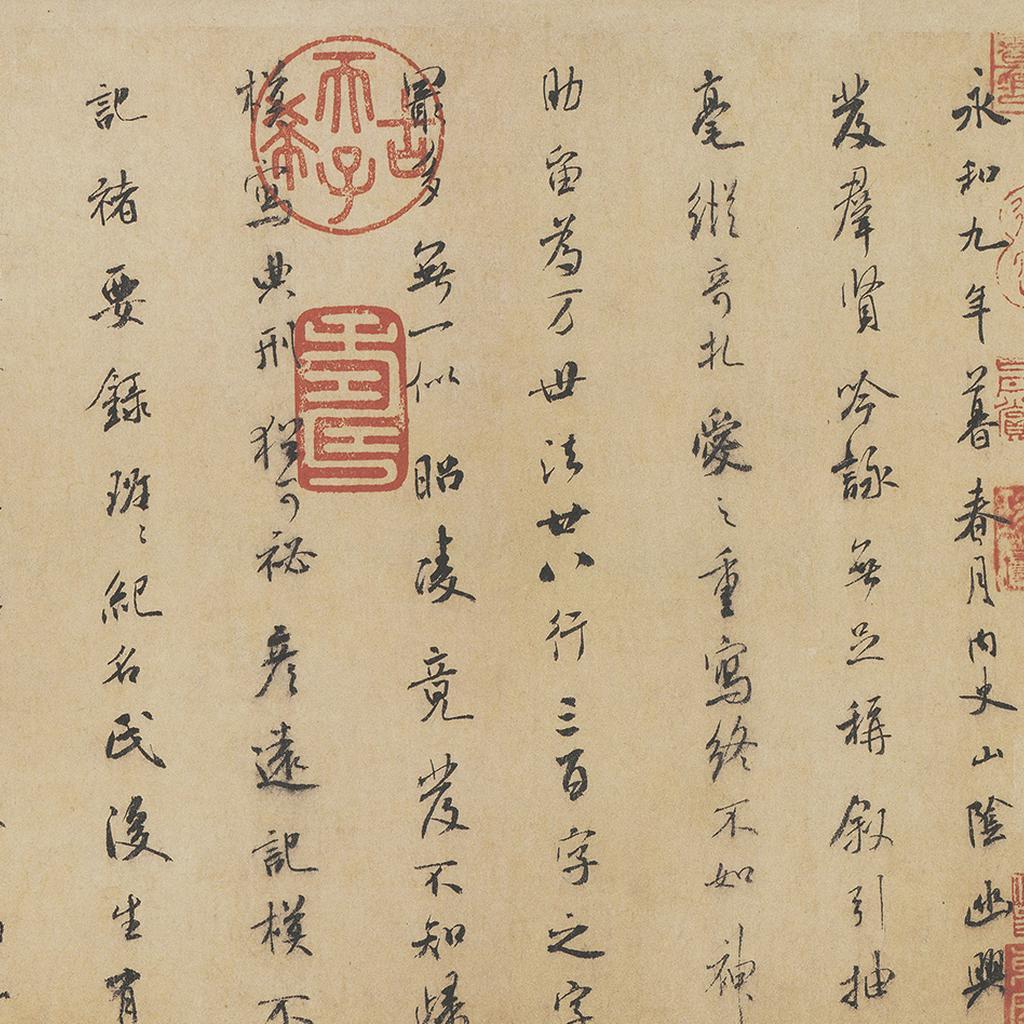 永和九年暮春月内史山陰幽興
發羣賢吟詠無足稱叙引抽
毫縱奇札愛之重寫終不如神
助留為万世法廿八行三百字之字
最多無一似昭陵竟發不知歸
模寫典刑猶可秘彥遠記模不
記褚要錄班〻紀名氏後生有